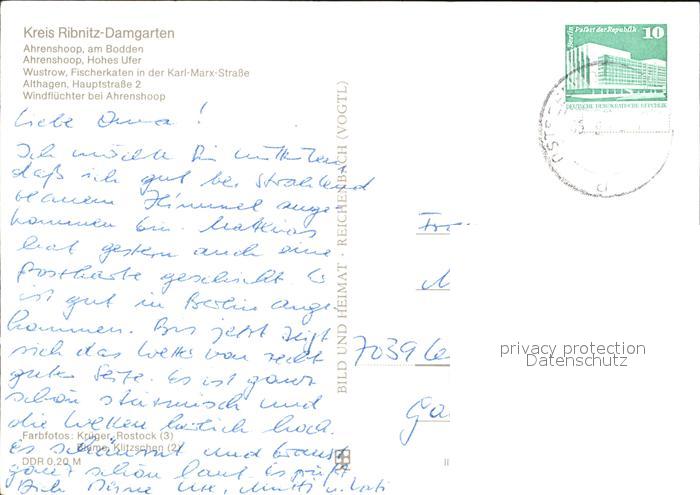 Kreis Ribnitz-Damgarten
Ahrenshoop, am Bodden
Ahrenshoop, Hohes Ufer
Wustrow, Fischerkaten in der Karl-Marx-Straße
Althagen, Hauptstraße 2
Windflüchter bei Ahrenshoop
Liebe Omma!
Ich möchte Dir mitteilen
daß ich gut bei strahlend
blauem Himmel ange-
kommen bin. Mathias
hat gestern auch eine
Postkarte geschickt. Er
ist gut in Berlin ange-
kommen. Bis jetzt zeigt
sich das Wetter von recht
guter Seite. Es ist ganz
schön stürmisch und
die Wellen herrlich hoch.
Es schäumt und braust
ganz schön laut. Es grüßt
Dich Deine Ute, Mutti u. Vati
Farbfotos: Krüger, Rostock (3)
Blume, Klitzschen (2)
DDR 0,20 M
BILD UND HEIMAT · REICHENBACH (VOGTL)
Berlin Palast der Republik
10
DEUTSCHE DEMOKRATISCHE REPUBLIK
7039 Le
privacy protection
Datenschutz